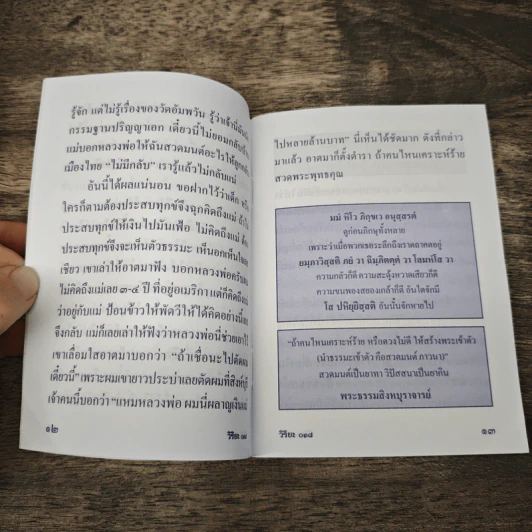 รู้จัก แต่ไม่รู้เรื่องของวัดอัมพวัน รู้ว่าเจ้านี่ฉันมี
กรรมฐานปริญญาเอก เดี๋ยวนี้ไม่ยอมกลับบ้าน
แม่บอกหลวงพ่อให้ฉันสวดมนต์อะไรให้ลูกกลับ
เมืองไทย “ไม่มีกลับ” เรารู้แล้วไม่กลับแน่
อันนี้ได้ผลแน่นอน ขอฝากไว้ว่าเด็ก
ใครก็ตามต้องประสบทุกข์จึงฉุกคิดถึงแม่ ถ้าไม่
ประสบทุกข์ให้เงินไปมันเฟ้อ ไม่คิดถึงแม่ ต้อง
ประสบทุกข์จึงจะเห็นตัวธรรมะ เห็นอกเห็นใจ
เชียว เขาเล่าให้อาตมาฟัง บอกหลวงพ่อครับผม
ไม่คิดถึงแม่เลย ๓-๔ ปี ที่อยู่อเมริกาแต่ก็คิดถึงแม่
ว่าอยู่กับแม่ ป้อนข้าวให้พัดวีให้ได้คิดอย่างนี้เลย
จึงกลับ แม่ก็เลยเล่าให้ฟังว่าหลวงพ่อนี่ช่วยเอาไว้
เขาเลื่อมใสอาตมาบอกว่า “ถ้าเชื่อนะไปตัดผม
เดี๋ยวนี้” เพราะผมเขายาวประบ่าเลยตัดผมที่สิงห์บุรี
เจ้าคนนี้บอกว่า “แหมหลวงพ่อ ผมนี่ผลาญเงินแม่
๑๒
วิริยะ ๐๑๘
ไปหลายล้านบาท” นี่เห็นได้ชัดมาก ดังที่กล่าว
มาแล้ว อาตมาก็ตั้งตำรา ถ้าคนไหนเคราะห์ร้าย
สวดพระพุทธคุณ
มมํ หิโว ภิกฺขเว อนุสฺสรตํ
ดูก่อนภิกษุทั้งหลาย
เพราะว่าเมื่อพวกเธอระลึกถึงเราตถาคตอยู่
ยมฺภวิสฺสติ ภยํ วา ฉมฺภิตตฺตํ วา โลมหํโส วา
ความกลัวก็ดี ความสะดุ้งหวาดเสียวก็ดี
ความขนพองสยองเกล้าก็ดี อันใดจักมี
โส ปหิยฺยิสฺสติ อันนั้นจักหายไป
“ถ้าคนไหนเคราะห์ร้าย หรือดวงไม่ดี ให้สร้างพระเข้าตัว
(นำธรรมะเข้าตัว คือสวดมนต์ ภาวนา)”
สวดมนต์เป็นยาทา วิปัสสนาเป็นยากิน
พระธรรมสิงหบุราจารย์
วิริยะ ๐๑๘
๑๓